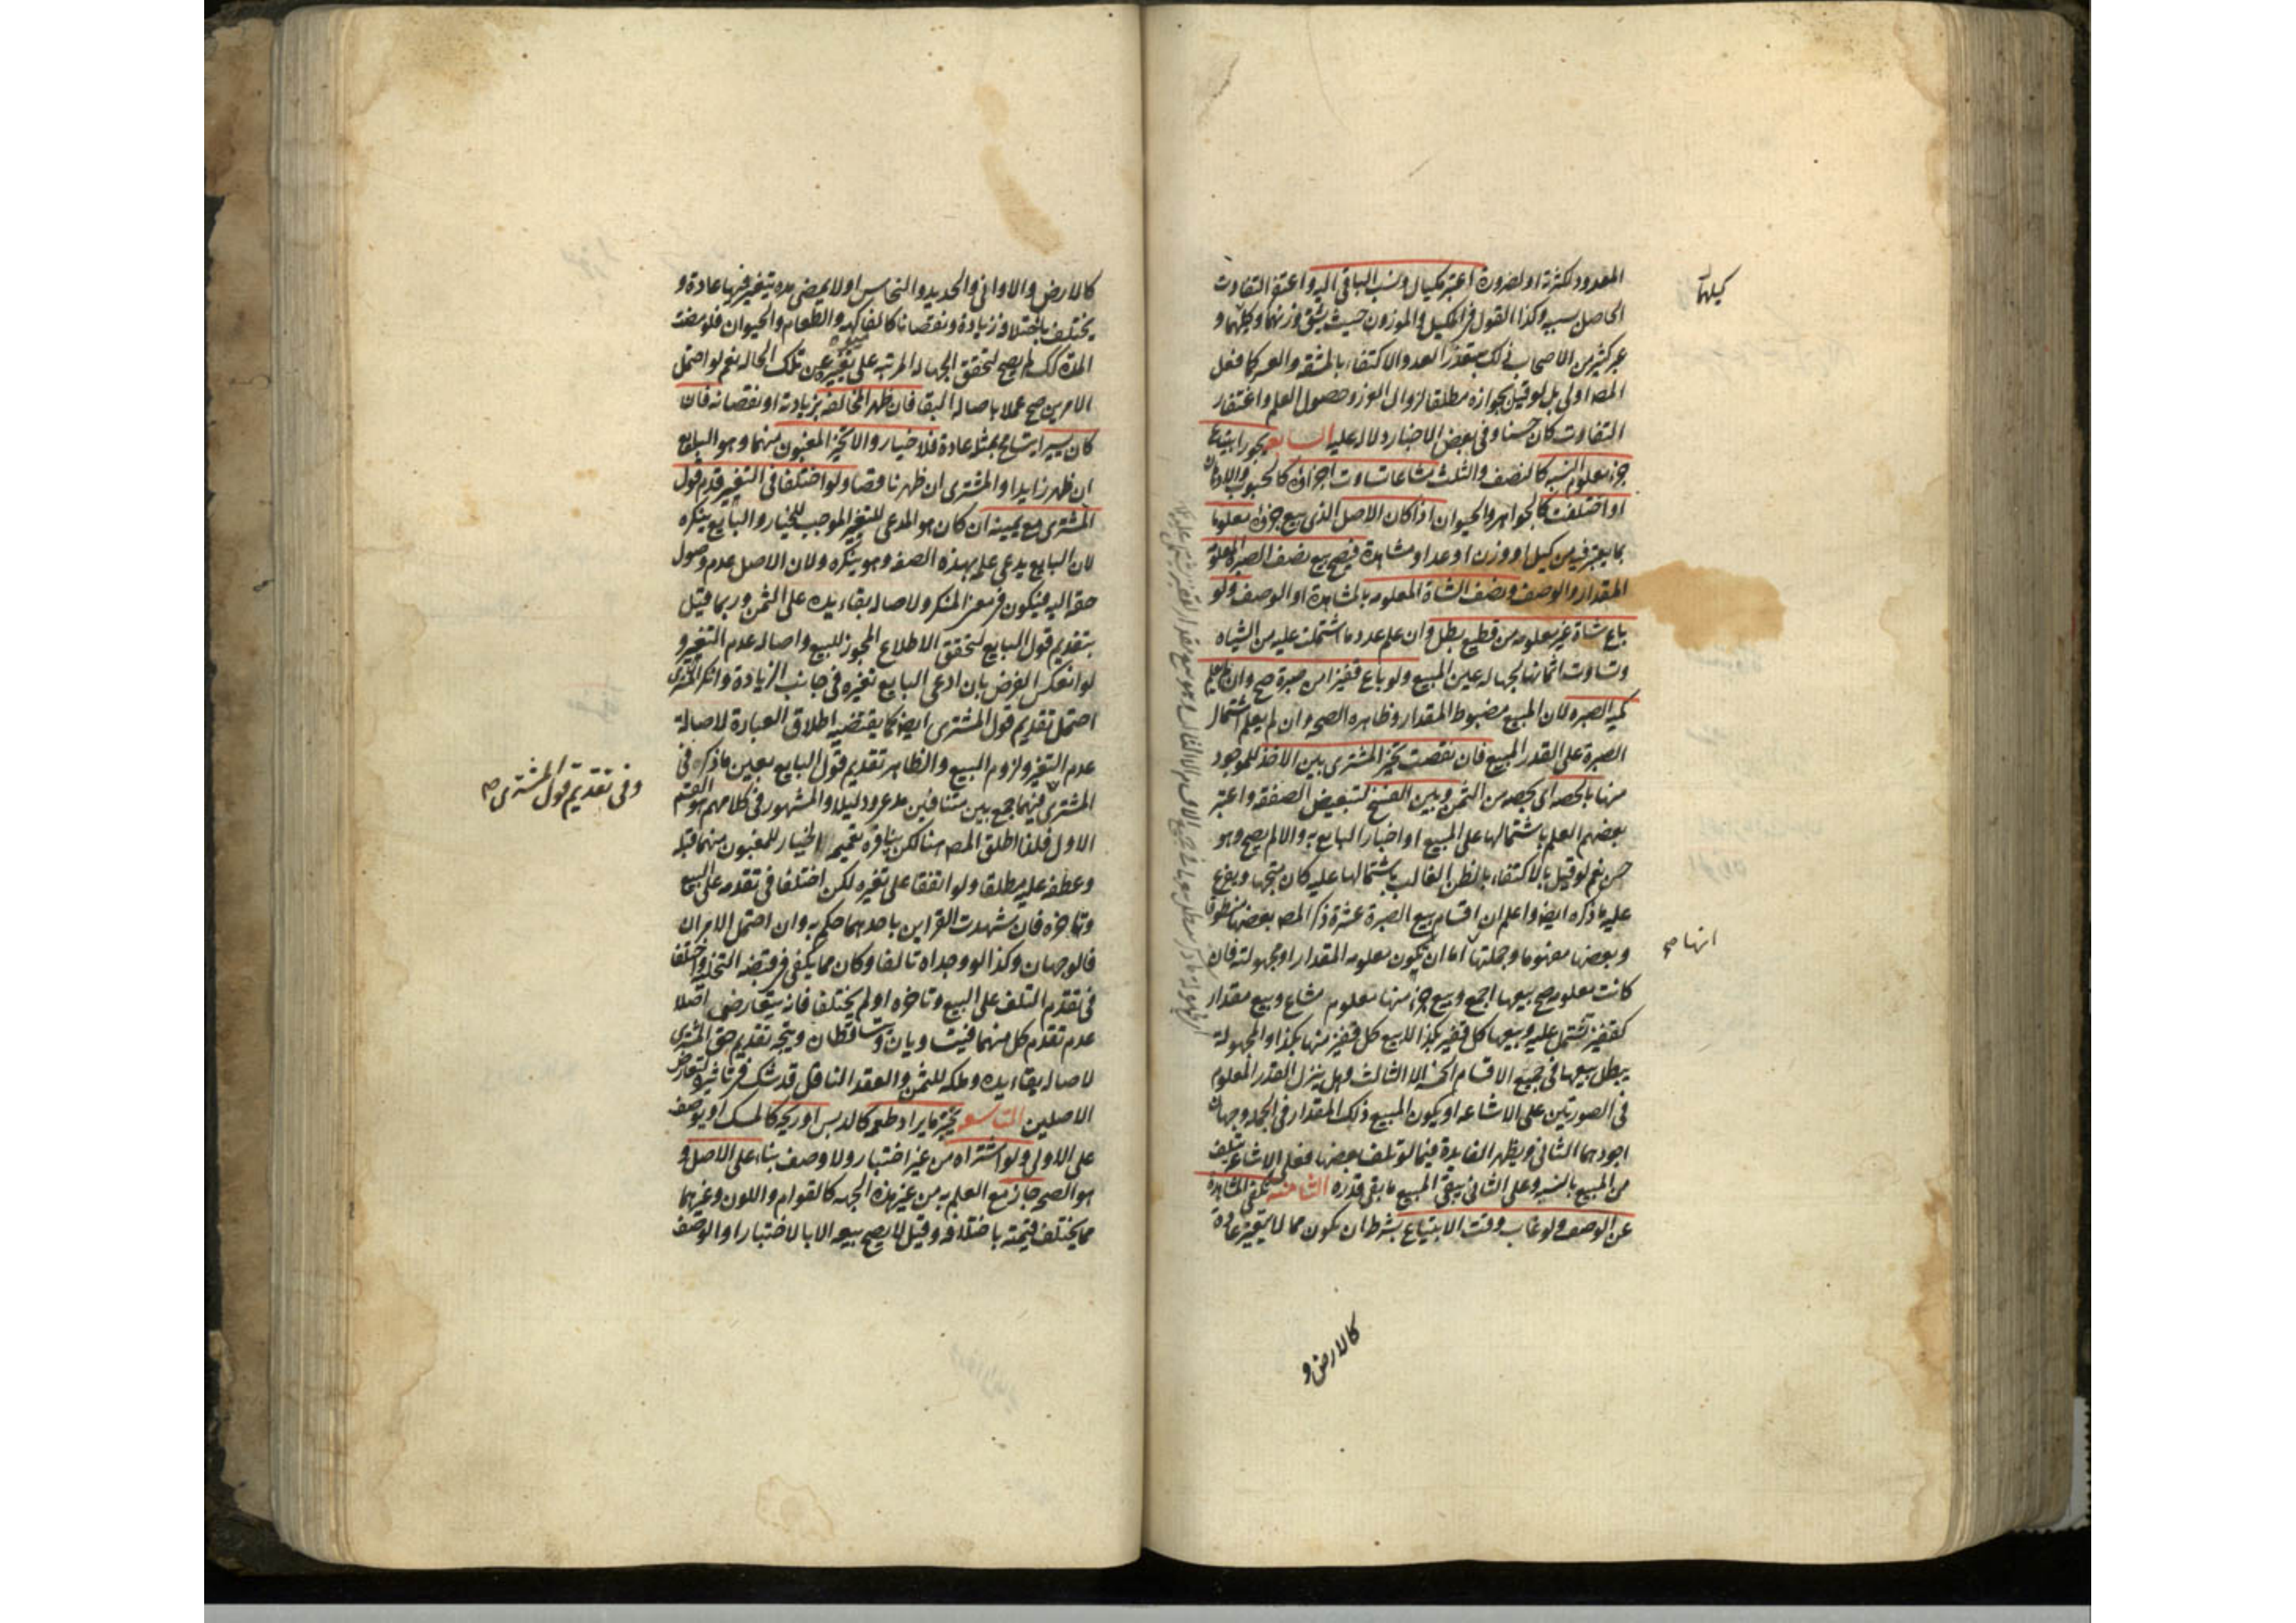 المعدود لكثرة او لضرورة اعتبر مكيال ونسب الباقي اليه واغتفر التفاوت
الحاصل بسببه وكذا القول في المكيل والموزون حيث يشق وزنهما وكيلهما و
عبر كثير من الاصحاب في ذلك بتعذر العد والاكتفاء بالمشقة والعسر كما فعل
المصه اولى بل لو قيل بجوازه مطلقا لزوال الغرر وحصول العلم واغتفار
التفاوت كان حسنا وفي بعض الاخبار دلالة عليه السابعة يجوز ابتياع
جزء معلوم النسبة كالنصف والثلث مشاعا تساوت اجزاؤه كالحبوب والادهان
او اختلفت كالجواهر والحيوان اذا كان الاصل الذي بيع جزؤه معلوما
بما يعتبر فيه من كيل او وزن او عد او مشاهدة فيصح بيع نصف الصبرة المعلومة
المقدار والوصف ونصف الشاة المعلومة بالمشاهدة او الوصف ولو
باع شاة غير معلومة من قطيع بطل وان علم عدد ما اشتملت عليه من الشياه
وتساوت اثمانها لجهالة عين المبيع ولو باع قفيزا من صبرة صح وان لم يعلم
كمية الصبرة لان المبيع مضبوط المقدار وظاهره الصحة وان لم يعلم اشتمال
الصبرة على القدر المبيع فان نقصت تخير المشتري بين الاخذ للموجود
منها بالحصة اي بحصه من الثمن وبين الفسخ لتبعيض الصفقة واعتبر
بعضهم العلم باشتمالها على المبيع او اخبار البايع به والا لم يصح وهو
حسن نعم لو قيل بالاكتفاء بالظن الغالب باشتمالها عليه كان متجها ويفرع
عليه ما ذكره ايضا واعلم ان اقسام بيع الصبرة عشرة ذكر المصه بعضها منطوقا
وبعضها مفهوما وجملتها اما ان يكون معلومة المقدار او مجهولته فان
كانت معلومة صح بيعها اجمع وبيع جزء منها معلوم مشاع وبيع مقدار
كقفيز تشتمل عليه وبيعها كل قفيز بكذا لا بيع كل قفيز منها بكذا والمجهولة
يبطل بيعها في جميع الاقسام الخمسة الا الثالث وهل ينزل القدر المعلوم
في الصورتين على الاشاعة او يكون المبيع ذلك المقدار في الجملة وجهان
اجودهما الثاني ويظهر الفايدة فيما لو تلف بعضها فعلى الاشاعة يتلف
من المبيع بالنسبة وعلى الثاني يبقى المبيع ما بقي قدره الثامنة تكفي المشاهدة
عن الوصف ولو غاب وقت الابتياع بشرط ان يكون مما لا يتغير عادة
كيلهما
انها صح
كالارض و
كالارض والاواني والحديد والنحاس او لا يمضي مدة يتغير فيها عادة و
يختلف باختلافه زيادة ونقصانا كالفاكهة والطعام والحيوان فلو مضت
المدة كك لم يصح لتحقق الجهالة المرتبة على تغيره عن تلك الحالة نعم لو احتمل
الامرين صح عملا باصالة البقا فان ظهر المخالفة بزيادته او نقصانه فان
كان يسيرا يتسامح بمثله عادة فلا خيار والا تخير المغبون منهما وهو البايع
ان ظهر زايدا والمشتري ان ظهر ناقصا ولو اختلفا في التغير قدم قول
المشتري مع يمينه ان كان هو المدعي للتغير الموجب للخيار والبايع ينكره
لان البايع يدعي علمه بهذه الصفة وهو ينكره ولان الاصل عدم وصول
حقه اليه فيكون في معنى المنكر ولاصالة بقاء يده على الثمن وربما قيل
بتقديم قول البايع لتحقق الاطلاع المجوز للبيع واصالة عدم التغير و
لو انعكس الفرض بان ادعى البايع تغيره في جانب الزيادة وانكر المشتري
احتمل تقديم قول المشتري ايضا كما يقتضيه اطلاق العبارة لاصالة
عدم التغير ولزوم البيع والظاهر تقديم قول البايع بعين ما ذكر في
المشتري فيهما جمع بين متنافيين مدعى ودليلا والمشهور في كلامهم هو القسم
الاول فلذا اطلق المصه هنا لكن ينافره تعميمه الخيار للمغبون منهما قبله
وعطفه عليه مطلقا ولو اتفقا على تغيره لكن اختلفا في تقدمه على البيع
وتاخره فان شهدت القراين باحدهما حكم به وان احتمل الامران
فالوجهان وكذا لو وجداه تالفا وكان مما يكفي في قبضه التخلية واختلفا
في تقدم التلف على البيع وتاخره او لم يختلفا فانه يتعارض اصلا
عدم تقدم كل منهما فيتساويان ويتساقطان ويتجه تقديم حق المشتري
لاصالة بقاء يده وملكه للثمن والعقد الناقل قد شك في تاثيره لتعارض
الاصلين التاسعة يعتبر ما يراد طعمه كالدبس او ريحه كالمسك او يوصف
على الاولى ولو اشتراه من غير اختبار ولا وصف بناء على الاصل و
هو الصحة جاز مع العلم به من غير هذه الجهة كالقوام واللون وغيرهما
مما يختلف قيمته باختلافه وقيل لا يصح بيعه الا بالاختبار او الوصف
وفي تقديم قول المشتري صح